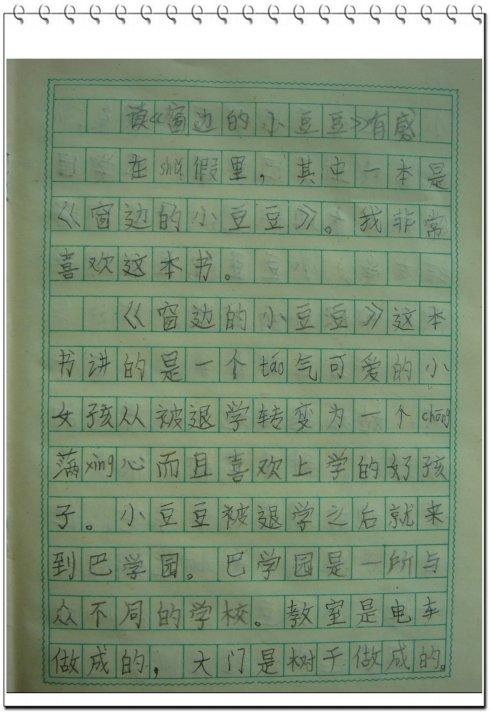 读《窗边的小豆豆》有感
在shǔ假里，其中一本是
《窗边的小豆豆》。我非常
喜欢这本书。
《窗边的小豆豆》这本
书讲的是一个táo气可爱的小
女孩从被退学转变为一个chōng
满xìng心而且喜欢上学的好孩
子。小豆豆被退学之后就来
到巴学园。巴学园是一所与
众不同的学校。教室是电车
做成的，大门是树干做成的。